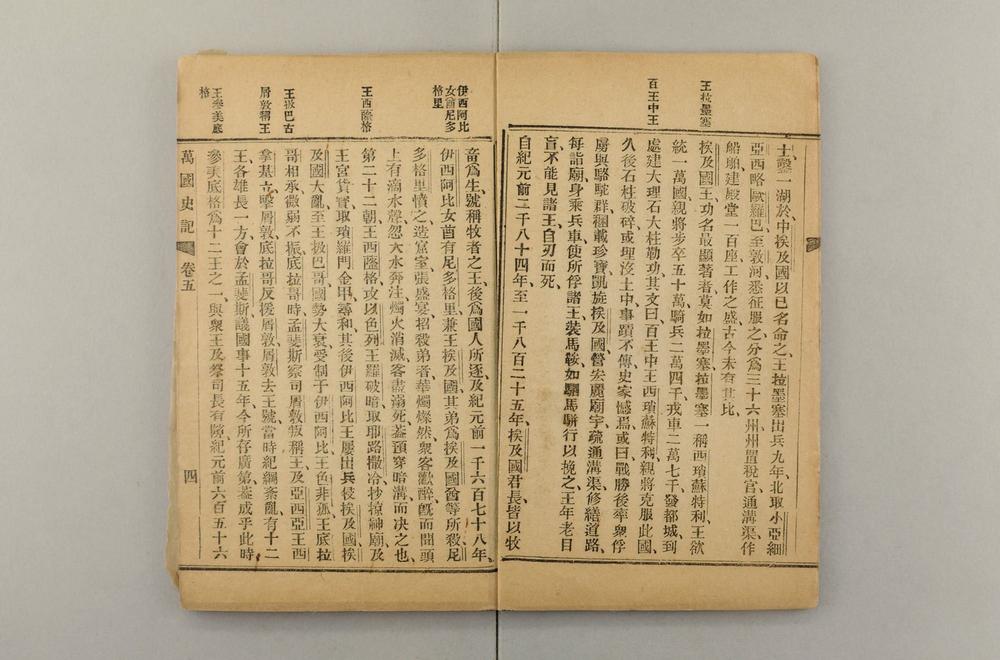 王拉墨塞
百王中王
土鑿一湖於中埃及國以己名命之王拉墨塞出兵九年北取小亞細
亞西略歐羅巴至敦河悉征服之分為三十六州州置稅官通溝渠作
船舶建殿堂一百座工作之盛古今未有其比
埃及國王功名最顯著者莫如拉墨塞拉墨塞一稱西瑣蘇特利王欲
統一萬國親將步卒五十萬騎兵二萬四千戎車二萬七千發都城到
處建大理石大柱勒功其文曰百王中王西瑣蘇特利親將克服此國
久後石柱破碎或埋沒土中事蹟不傳史家憾焉或曰戰勝後率衆俘
虜與駱駝群稛載珍寶凱旋埃及國營宏麗廟宇疏通溝渠修繕道路
每詣廟身乘兵車使所俘諸王裝馬鞍如驅馬駢行以挽之王年老目
盲不能見諸王自刃而死
自紀元前二千八十四年至一千八百二十五年埃及國君長皆以牧
伊西阿比
女酋尼多
格里
王西隆格
王扱巴古
屑敦稱王
王參美底
格
畜為生號稱牧者之王後為國人所逐及紀元前一千六百七十八年
伊西阿比女酋有尼多格里兼王埃及國其弟為埃及國酋等所殺尼
多格里憤之造窟室張盛宴招殺弟者華燭燦然衆客歡醉旣而開頭
上有滴水聲忽大水奔注燭火消滅客盡溺死蓋預穿暗溝而决之也
第二十二朝王西隆格攻以色列王羅破暗取耶路撒冷抄掠神廟及
王宮貨寶取瑣羅門金甲尋和其後伊西阿比王屢出兵侵埃及國埃
及國大亂至王扱巴哥國勢大衰受制于伊西阿比王色非孤王底拉
哥相承微弱不振底拉哥時孟斐斯祭司屑敦叛稱王及亞西亞王西
拿基立擊屑敦底拉哥反援屑敦屑敦去王號當時紀綱紊亂有十二
王各雄長一方會於孟斐斯議國事十五年今所存廣第蓋成乎此時
參美底格為十二王之一與衆王及祭司長有隙紀元前六百五十六
萬國史記 卷五 四